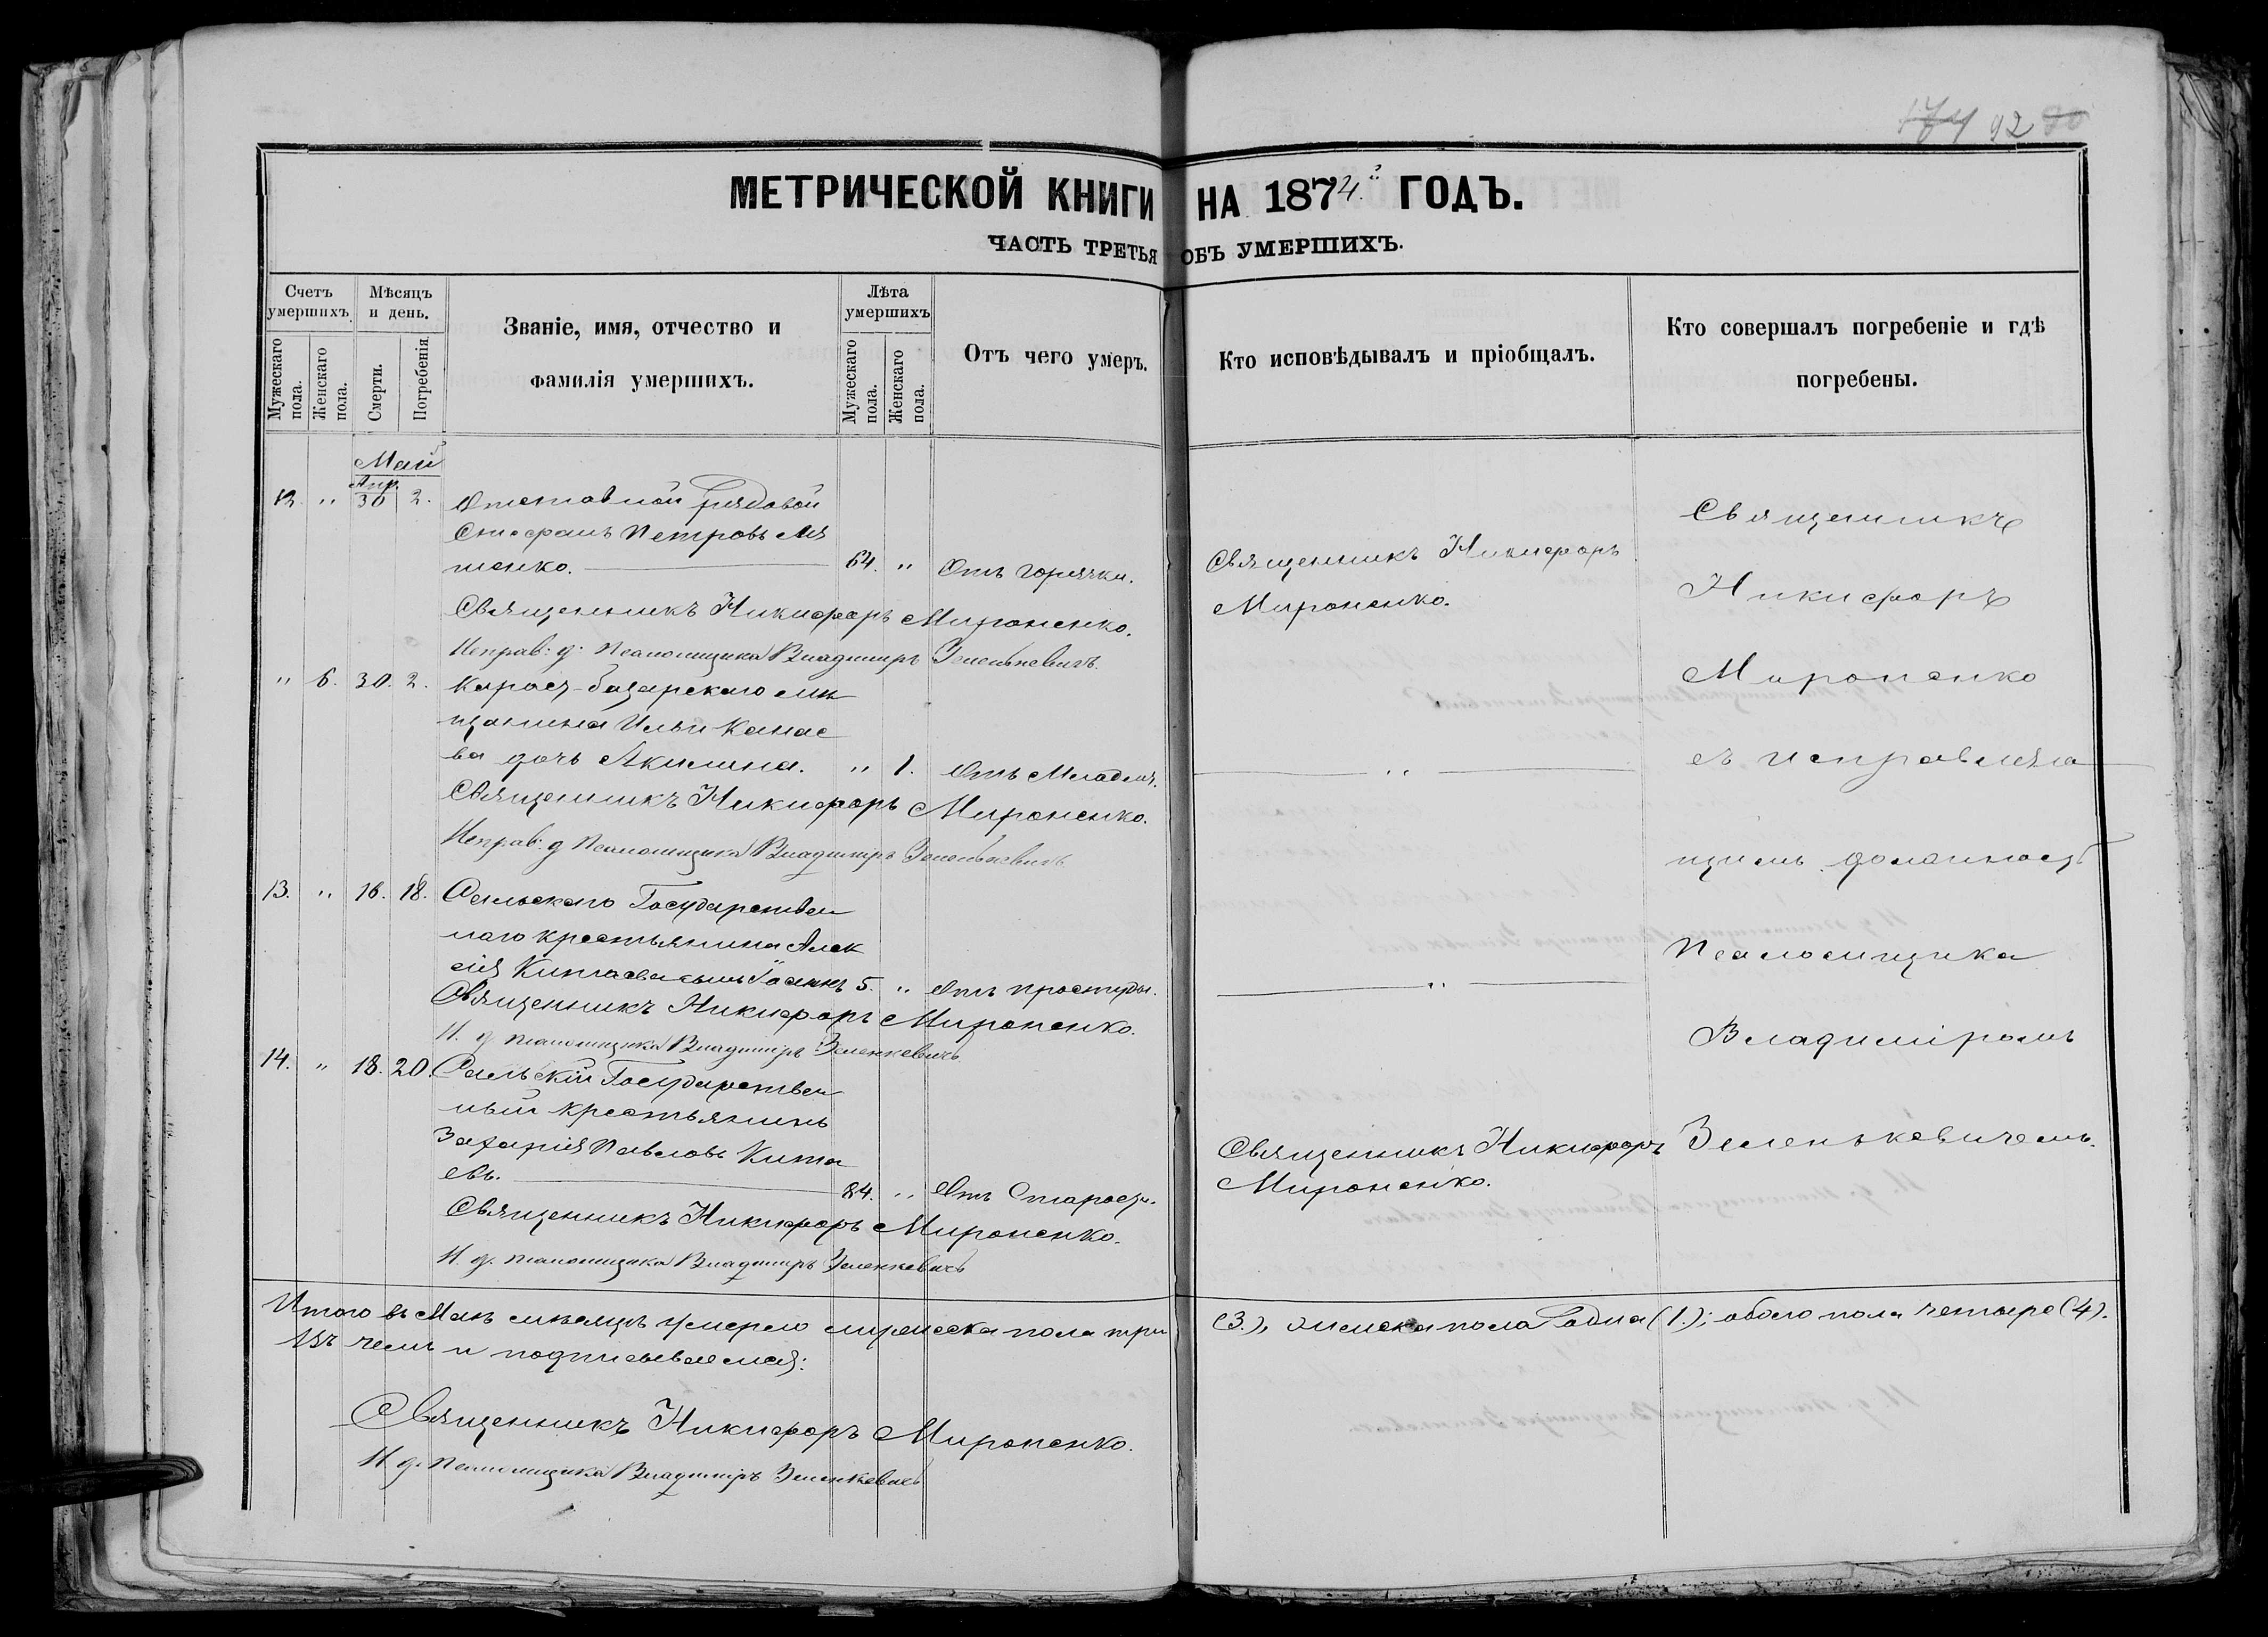 174 92 90
МЕТРИЧЕСКОЙ КНИГИ НА 1874й ГОДЪ.
ЧАСТЬ ТРЕТЬЯ ОБЪ УМЕРШИХЪ.
Счетъ умершихъ.
Мужескаго пола.
Женскаго пола.
Мѣсяцъ и день.
Смерти.
Погребенія.
Званіе, имя, отчество и
фамилія умершихъ.
Лѣта умершихъ
Мужескаго пола.
Женскаго пола.
Отъ чего умеръ.
Кто исповѣдывалъ и пріобщалъ.
Кто совершалъ погребеніе и гдѣ
погребены.
Май
12. " Апр. 30 2. Отставной рядовой
Стефанъ Петровъ
тенко. 64. " Отъ горячки.
Священникъ Никифоръ Мироненко.
Исправ: д: Псаломщика Владиміръ Зеленкевичъ.
Священникъ Никифоръ
Мироненко.
" 6. 30. 2. Карасу-базарскаго мѣ
щанина Ильи Канае
ва дочь Акилина. " 1. Отъ Младен.
Священникъ Никифоръ Мироненко.
Исправ: д Псаломщика Владиміръ Зеленкевичъ
"
13. " 16. 18. Сельскаго Государствен
наго крестьянина Алек
сія Китаева сынъ Іоаннъ 5. " Отъ простуды.
Священникъ Никифоръ Мироненко.
И. д псаломщика Владиміръ Зеленкевичъ
"
14. " 18. 20. Сельскій Государствен
ный крестьянинъ
Захарія Павловъ Кита
евъ. 84. " Отъ Старости.
Священникъ Никифоръ Мироненко.
И. д. псаломщика Владиміръ Зеленкевичъ
Священникъ Никифоръ
Мироненко.
Священникъ
Никифоръ
Мироненко
съ исправляю
щимъ должность
Псаломщика
Владиміромъ
Зеленькевичемъ.
Итого въ Маѣ мѣсяцѣ умерло мужеска пола три (3.), женска пола одна (1.); обоего пола четыре (4).
Въ чемъ и подписываемся:
Священникъ Никифоръ Мироненко.
И д. Псаломщика Владиміръ Зеленкевичъ